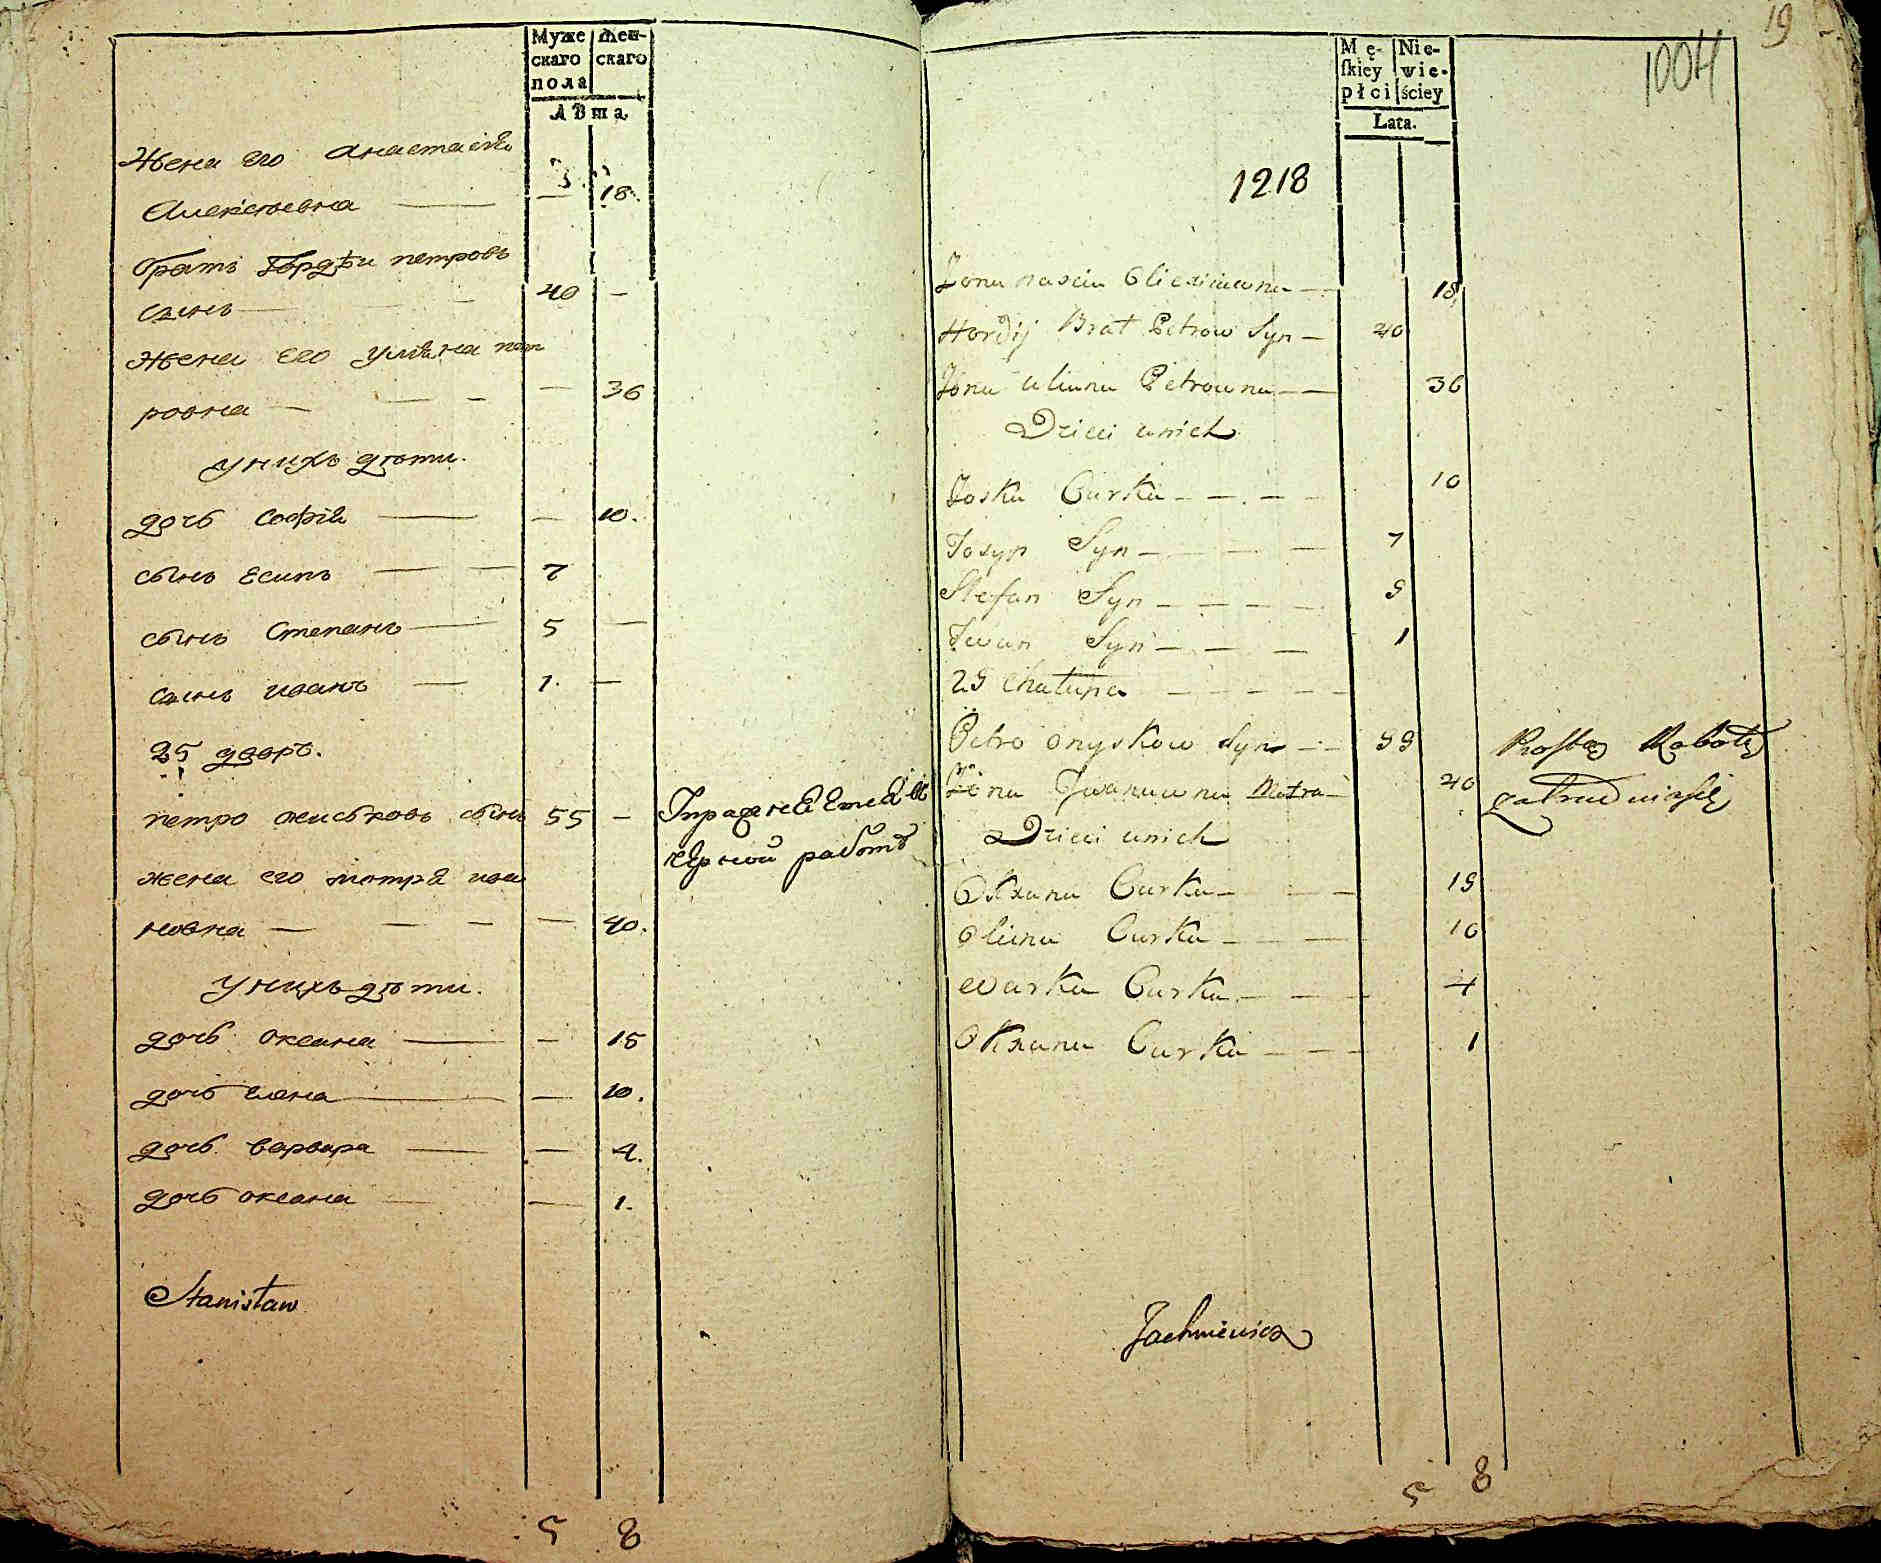 Муже
скаго
пола
Жен-
скаго
Лѣта
Жена его Анастасия
Алексѣевна — — 18.
братъ Гордѣи петровъ
сынъ — 40 —
жена его улияна пет
ровна — — 36
у нихъ дѣти.
дочь Софія — — 10.
сынъ есипъ — 7
сынъ Степанъ — 5 —
сынъ иванъ — 1. —
25 дворъ.
петро онисковъ сынъ 55 —
жена его мотря ива
новна — — 40.
у нихъ дѣти.
дочь оксана — — 15
дочь елена — — 10.
дочь варвара — — 4.
дочь оксана — — 1.
упражняется въ
черной работѣ
Stanisław
5 8
19
1004
Mę-
ſkiey
płci
Nie-
wie-
ściey
Lata.
1218
Żona nascia Olexiiuwna — 18
Hordij Brat Petrow Syn — 40
Żona uliana Petrowna — 36
Dzieci unich
Zoska Curka — 10
Josyp Syn — 7
Stefan Syn — 5
Iwan Syn — 1
25 Chałupa —
Petro onyskow Syn — 55
Żona Iwanuwna Motra — 40
Dzieci unich
Oxana Curka — 15
Olena Curka — 10
Warka Curka — 4
Oxana Curka — 1
Prostą Robotą
zatrudniasię
Jachniewicz
5 8